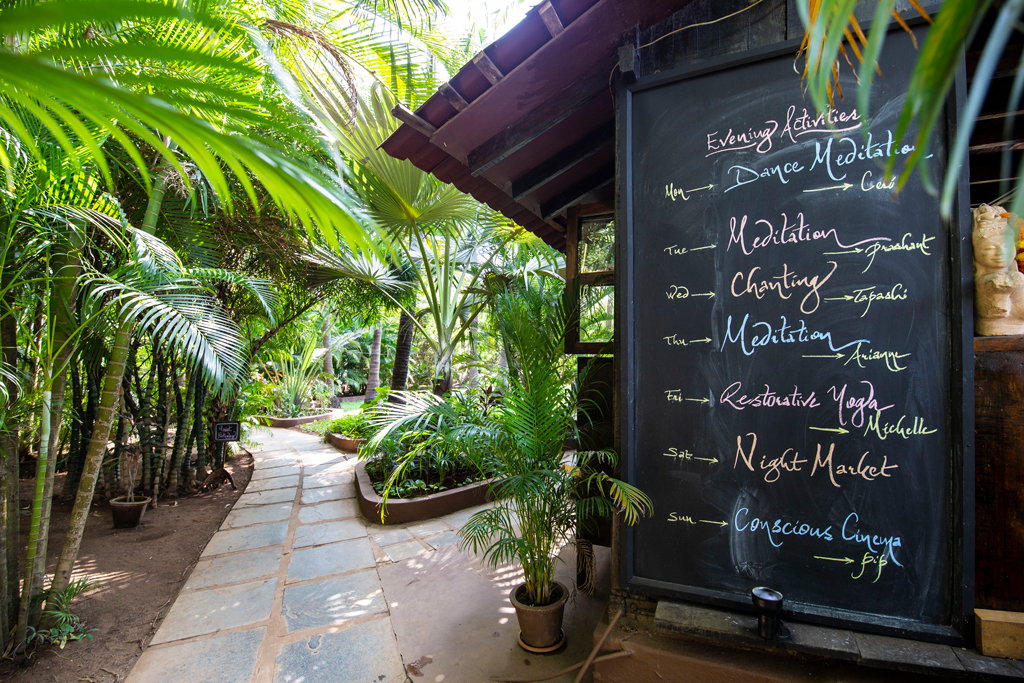 Evening Activities
Mon → Dance Meditation
→ Geri
Tue → Meditation
→ prashant
Wed → Chanting
→ Tapashi
Thu → Meditation
→ Arianne
Fri → Restorative Yoga
→ Michelle
Sat → Night Market
Sun → Conscious Cinema
→ pip